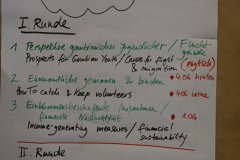 I. Runde
1 Perspektive gambianischer Jugendlicher / Fluchtgründe
Prospects for Gambian Youth / Causes for flight & migration (englisch)
2. Ehrenamtliche gewinnen & binden • 4.OG hinten
How To catch & keep volunteers • 4.OG vorne
3 Einkommensschaffende Massnahmen / finanzielle Nachhaltigkeit • 1.OG
Income-generating measures / financial sustainability
II. Runde